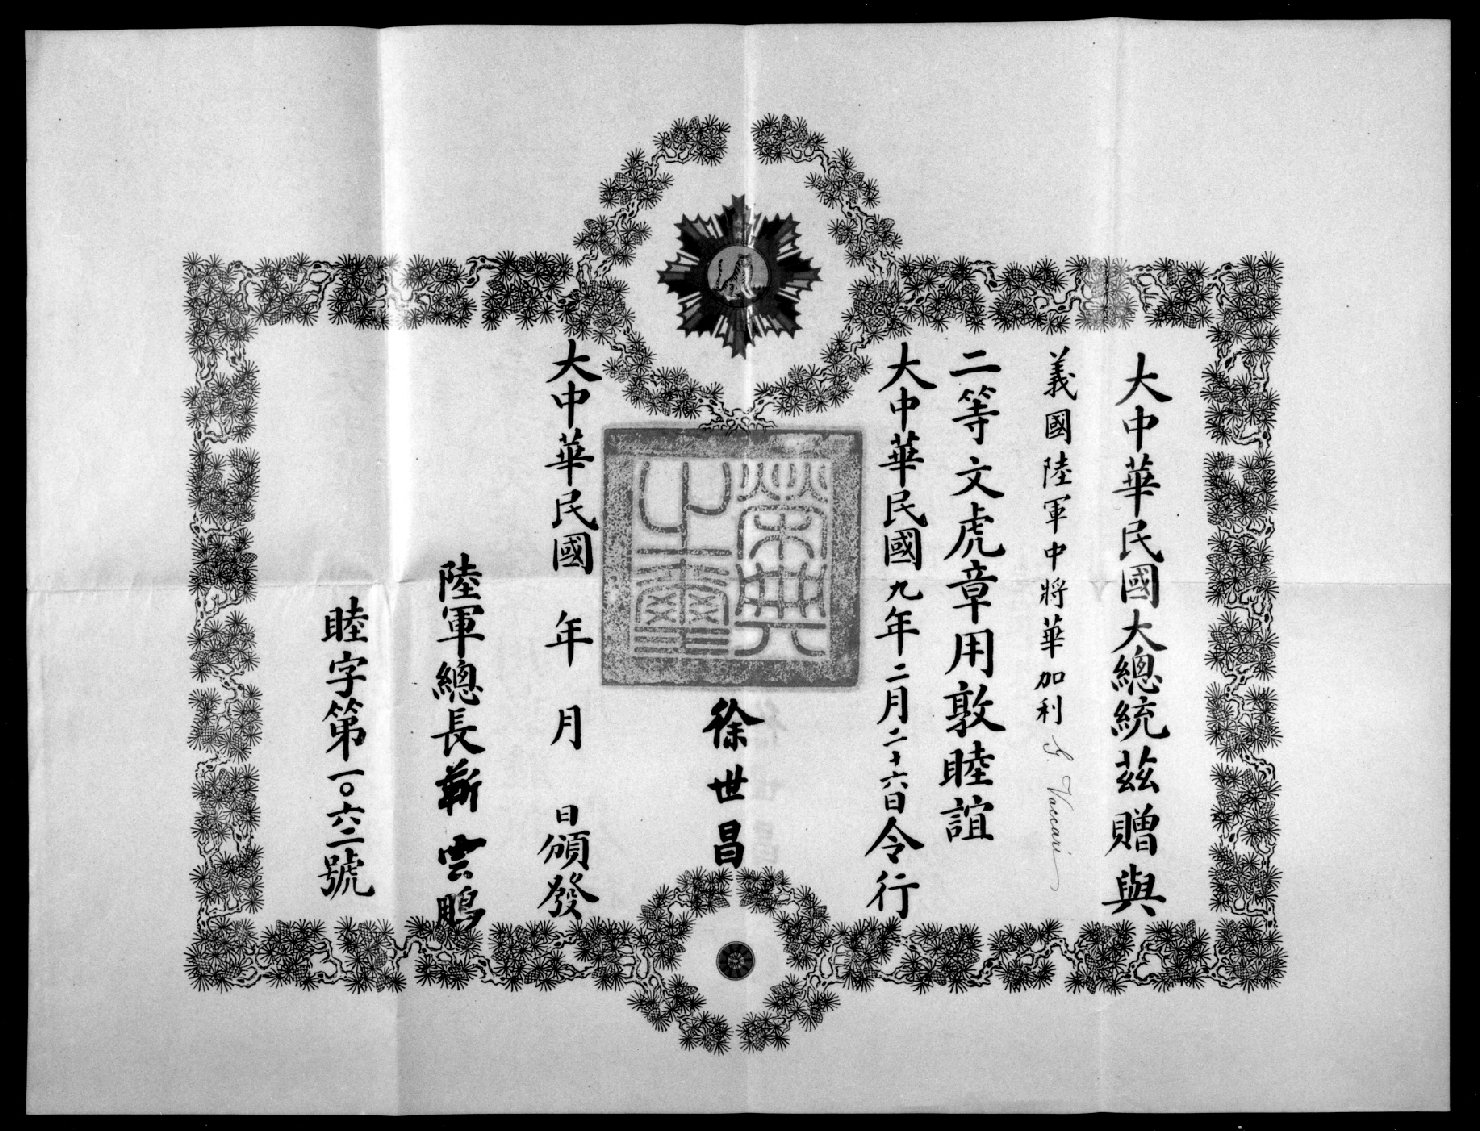 大中華民國大總統茲贈與
義國陸軍中將華加利 G. Vaccari
二等文虎章用敦睦誼
大中華民國九年二月二十六日令行
榮典之璽
徐世昌
大中華民國 年 月 日頒發
陸軍總長靳雲鵬
睦字第一〇六二號